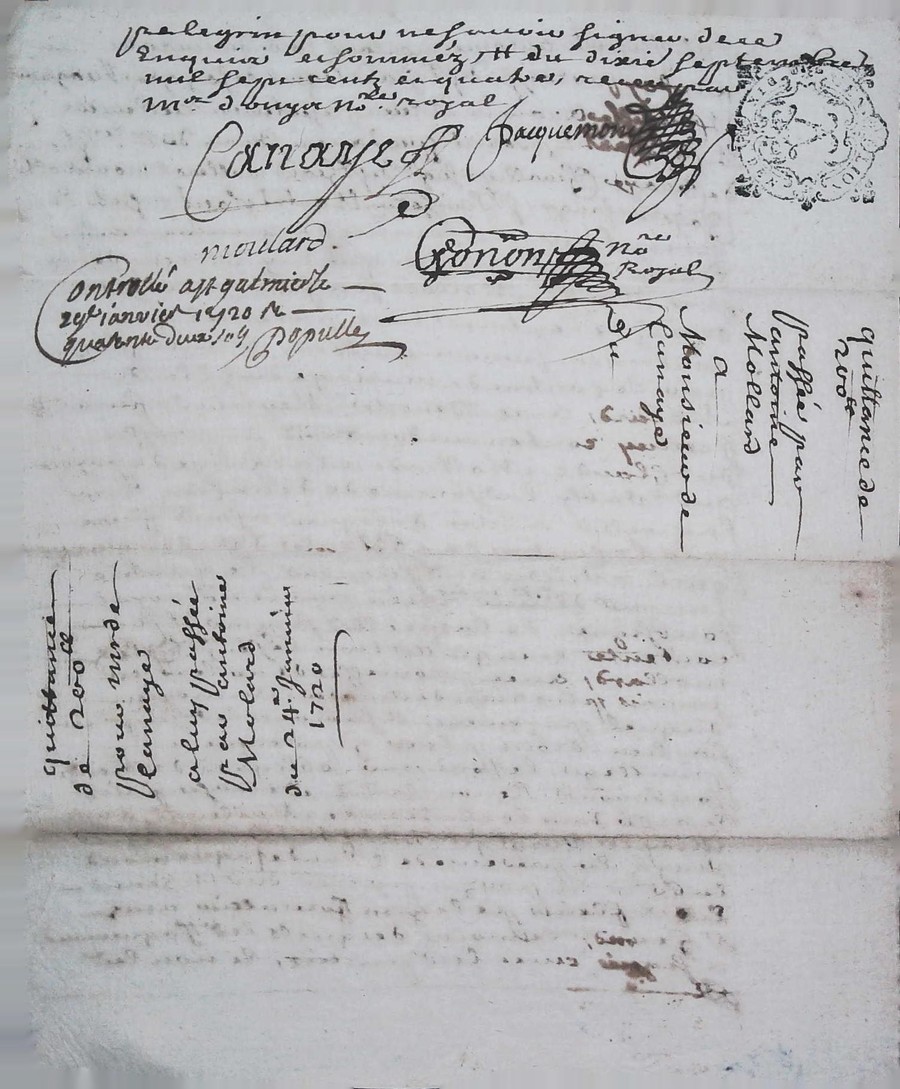 pelegrin pour ne scavoir signer de ce
Enquis et sommez, # du dixie septembre
mil sept cent et quatre, receu par
Mre donya nre royal
Canaye
Jacquemont
moulard
nre
Royal
Controllé a st galmier le
29e janvier 1720 R
quarente deux sols
Populle
quittance de
200ll
passée par
antoine
Mollard
a
Monsieur de
Canaye
Du
quittance
de 200ll
pour mr de
Canaye
a luy passée
par antoine
Molard
du 24e Janvier
1720